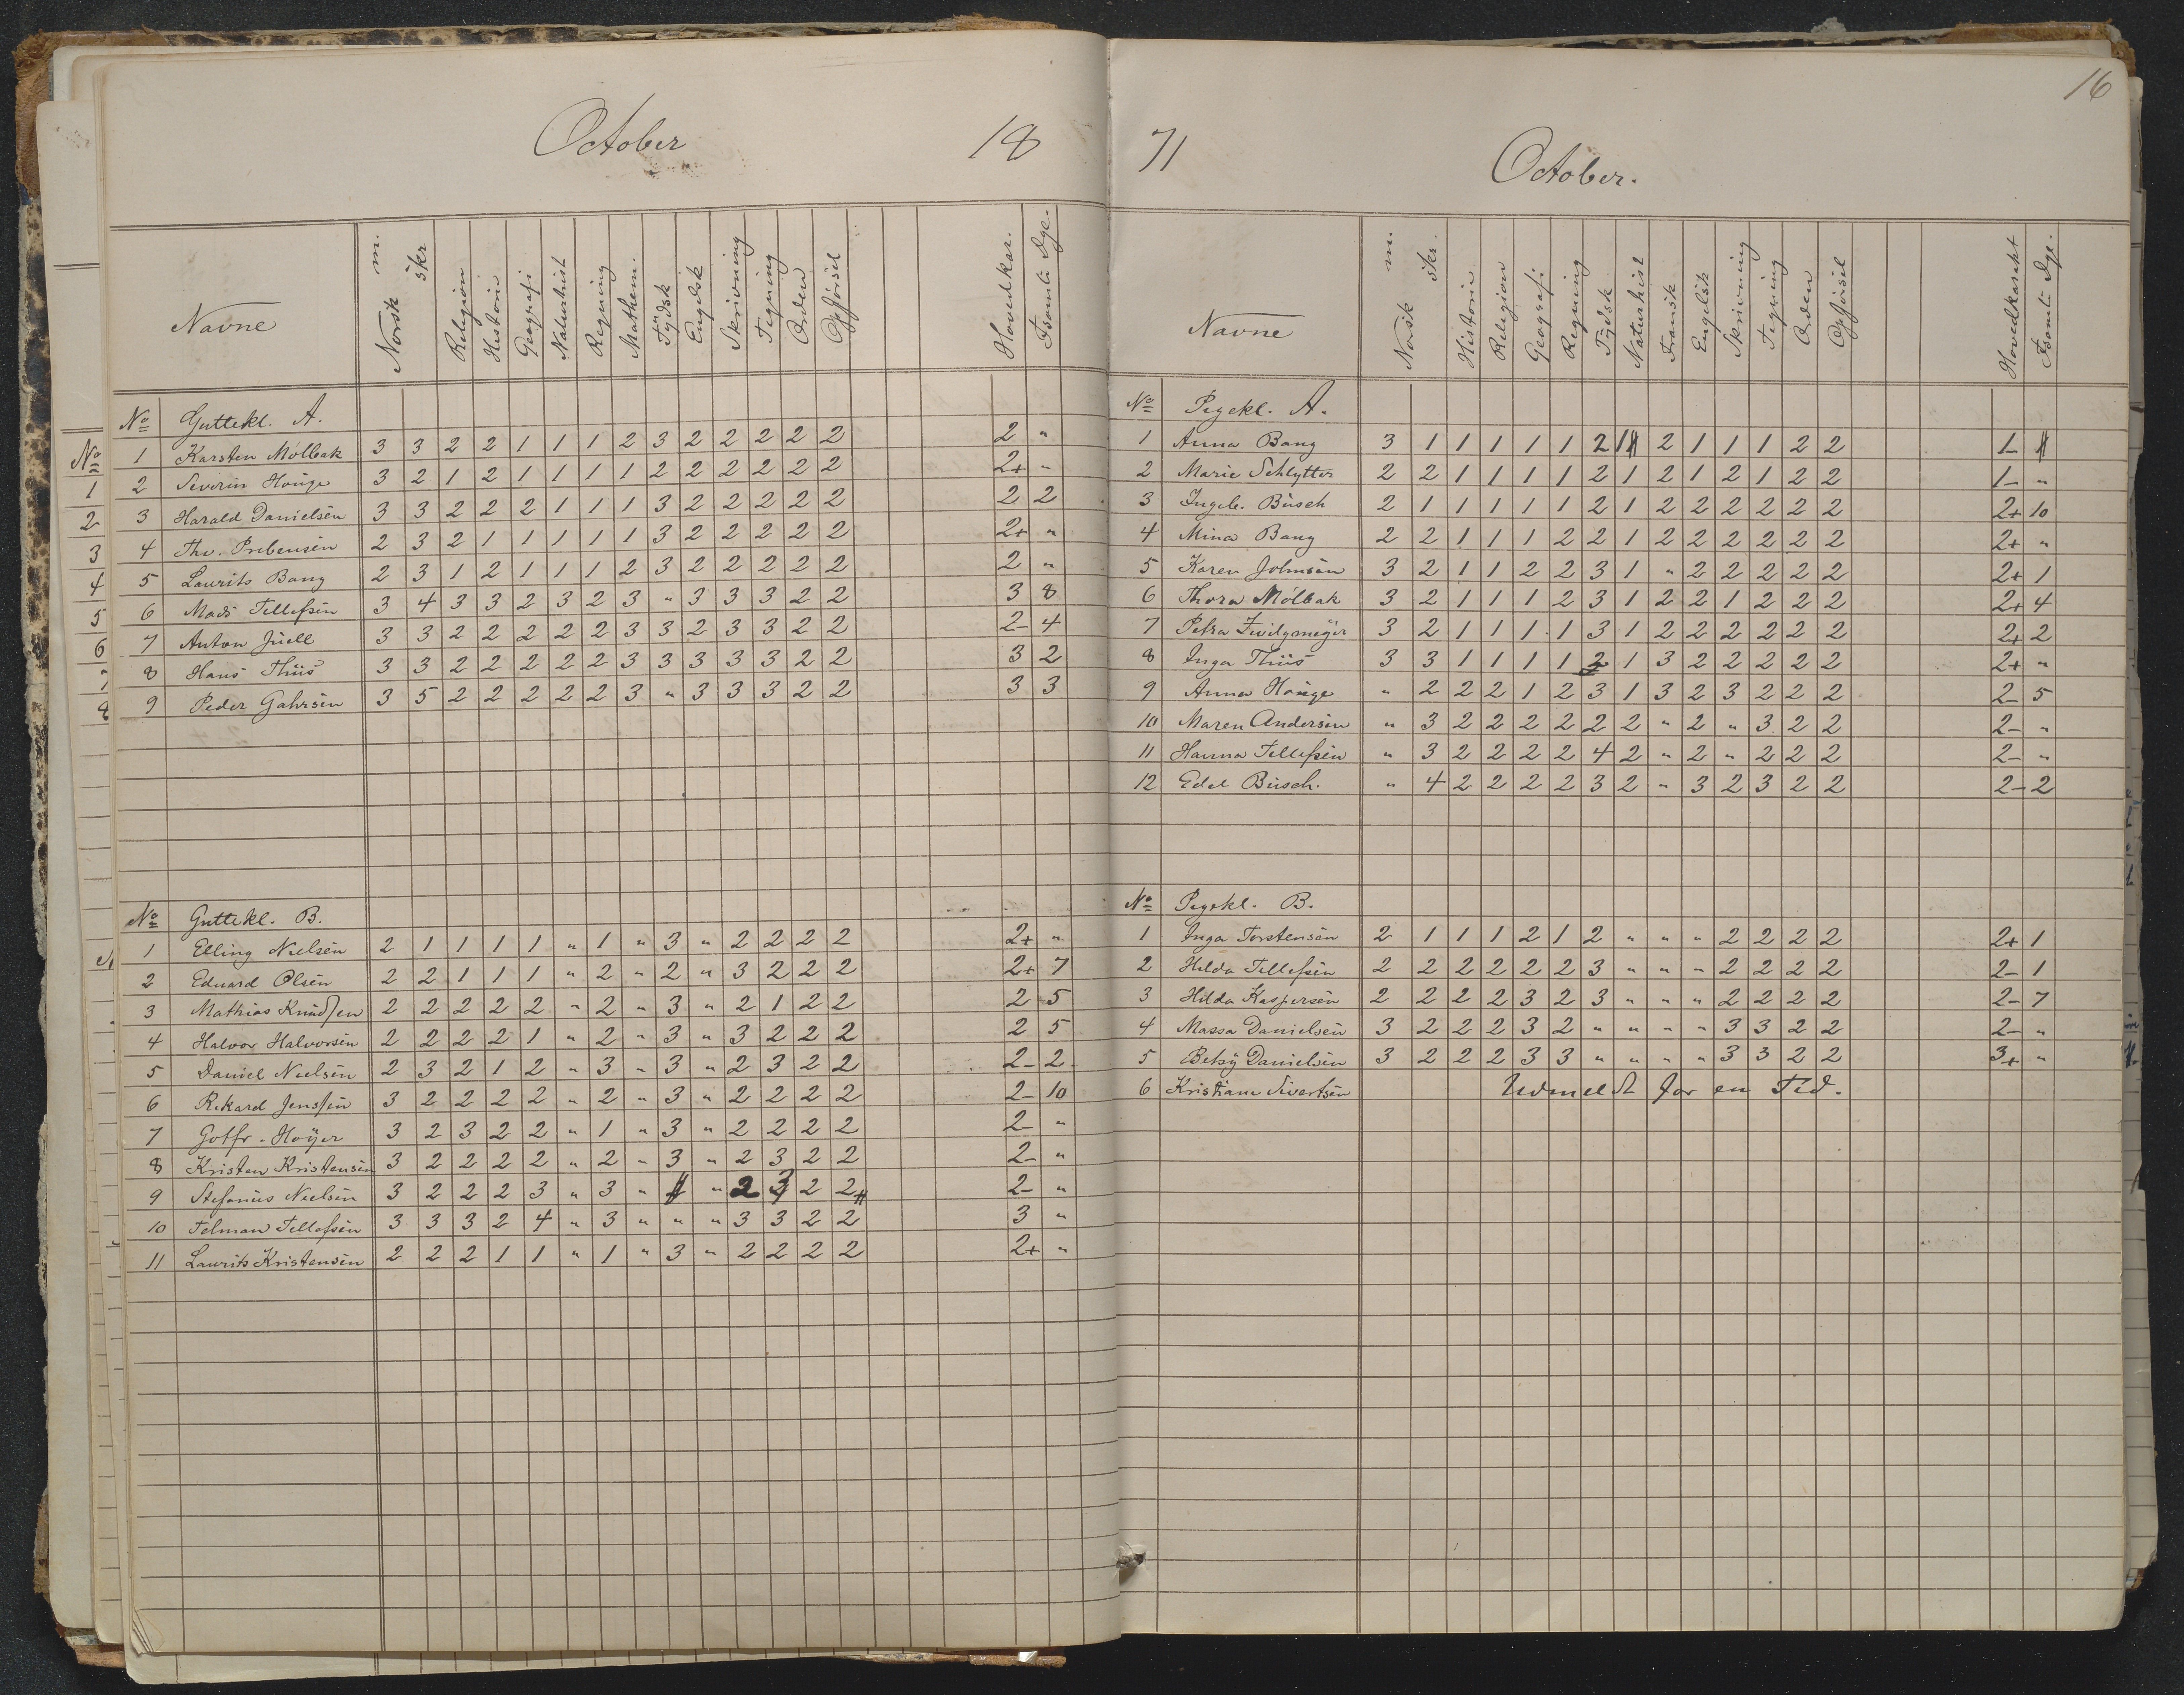 16
October 18
Navne Norsk m. skr Religion Historie Geografi Naturhist Regning Mathem. Tydsk Engelsk Skrivning Tegning Orden Opførsel Hovedkar. Fsømte Dge.
No Guttekl. A.
1 Karsten Mölbak 3 3 2 2 1 1 1 2 3 2 2 2 2 2 2 "
2 Severin Houge 3 2 1 2 1 1 1 1 2 2 2 2 2 2 2+ "
3 Harald Danielsen 3 3 2 2 2 1 1 1 3 2 2 2 2 2 2 2
4 Thv. Prebensen 2 3 2 1 1 1 1 1 3 2 2 2 2 2 2+ "
5 Laurits Bang 2 3 1 2 1 1 1 2 3 2 2 2 2 2 2 "
6 Mads Tellefsen 3 4 3 3 2 3 2 3 " 3 3 3 2 2 3 8
7 Anton Juell 3 3 2 2 2 2 2 3 3 2 3 3 2 2 2- 4
8 Hans Thiis 3 3 2 2 2 2 2 3 3 3 3 3 2 2 3 2
9 Peder Gahrsen 3 5 2 2 2 2 2 3 " 3 3 3 2 2 3 3
No Guttekl. B.
1 Elling Nielsen 2 1 1 1 1 " 1 " 3 " 2 2 2 2 2+ "
2 Eduard Olsen 2 2 1 1 1 " 2 " 2 " 3 2 2 2 2+ 7
3 Mathias Knudsen 2 2 2 2 2 " 2 " 3 " 2 1 2 2 2 5
4 Halvor Halvorsen 2 2 2 2 1 " 2 " 3 " 3 2 2 2 2 5
5 Daniel Nielsen 2 3 2 1 2 " 3 " 3 " 2 3 2 2 2- 2
6 Rikard Jenssen 3 2 2 2 2 " 2 " 3 " 2 2 2 2 2- 10
7 Gotfr. Høyer 3 2 3 2 2 " 1 " 3 " 2 2 2 2 2- "
8 Kristen Kristensen 3 2 2 2 2 " 2 " 3 " 2 3 2 2 2- "
9 Stefanus Nielsen 3 2 2 2 3 " 3 " " 2 3 2 2 2- "
10 Telman Tellefsen 3 3 3 2 4 " 3 " " " 3 3 2 2 3 "
11 Laurits Kristensen 2 2 2 1 1 " 1 " 3 " 2 2 2 2 2+ "
71 October.
Navne Norsk m. skr. Historie Religion Geografi Regning Tydsk Naturhist Fransk Engelsk Skrivning Tegning Orden Opførsel Hovedkarakt Fsømte Dge.
No Pigekl. A.
1 Anna Bang 3 1 1 1 1 1 2 1 2 1 1 1 2 2 1- "
2 Marie Schlytter 2 2 1 1 1 1 2 1 2 1 2 1 2 2 1- "
3 Ingeb. Busch 2 1 1 1 1 1 2 1 2 2 2 2 2 2 2+ 10
4 Mina Bang 2 2 1 1 1 2 2 1 2 2 2 2 2 2 2+ "
5 Karen Johnsen 3 2 1 1 2 2 3 1 " 2 2 2 2 2 2+ 1
6 Thora Mölbak 3 2 1 1 1 2 3 1 2 2 1 2 2 2 2+ 4
7 Petra Zwilgmeyer 3 2 1 1 1 1 3 1 2 2 2 2 2 2 2+ 2
8 Inga Thiis 3 3 1 1 1 1 2 1 3 2 2 2 2 2 2+ "
9 Anna Houge " 2 2 2 1 2 3 1 3 2 3 2 2 2 2- 5
10 Maren Andersen " 3 2 2 2 2 2 2 " 2 " 3 2 2 2- "
11 Hanna Tellefsen " 3 2 2 2 2 4 2 " 2 " 2 2 2 2- "
12 Edel Busch. " 4 2 2 2 2 3 2 " 3 2 3 2 2 2- 2
No Pigekl. B.
1 Inga Torstensen 2 1 1 1 2 1 2 " " " 2 2 2 2 2+ 1
2 Hilda Tellefsen 2 2 2 2 2 2 3 " " " 2 2 2 2 2- 1
3 Hilda Kaspersen 2 2 2 2 3 2 3 " " " 2 2 2 2 2- 7
4 Massa Danielsen 3 2 2 2 3 2 " " " " 3 3 2 2 2- "
5 Betsy Danielsen 3 2 2 2 3 3 " " " " 3 3 2 2 3+ "
6 Kristiane Sivertsen Udmeldt for en Tid.